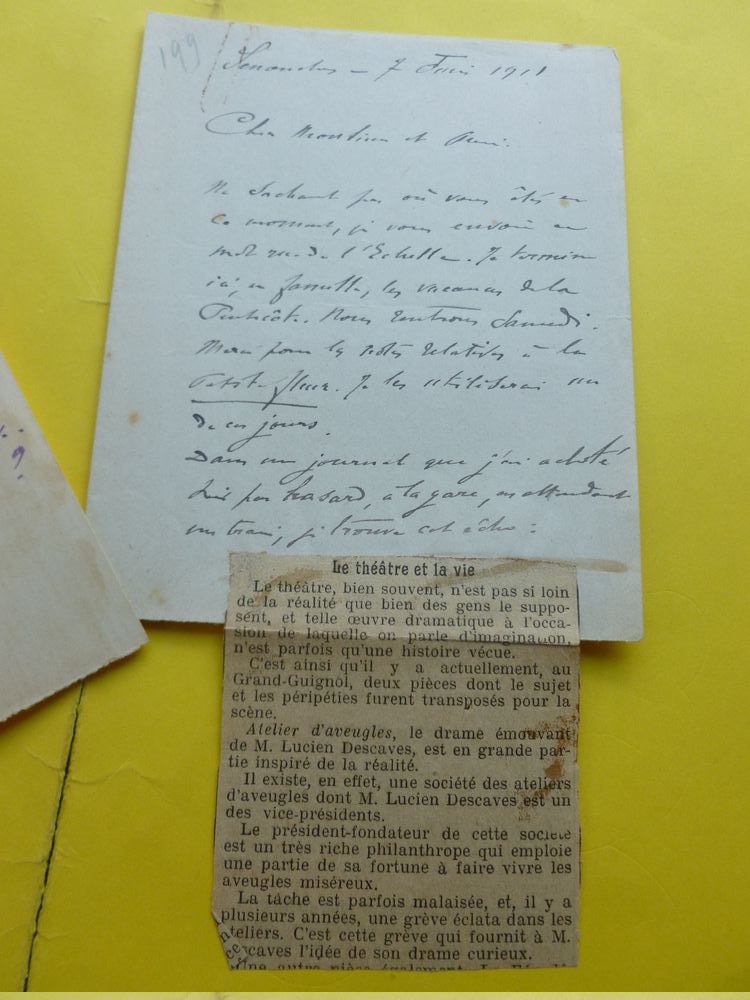 199
Senonches – 7 Juin 1911
Cher Monsieur et Ami.
Ne sachant pas où vous êtes en
ce moment, je vous envoie un
mot rue de l'Echelle. Je termine
ici, en famille, les vacances de la
Pentecôte. Nous rentrons Samedi.
Merci pour les notes relatives à la
Petite fleur. Je les utiliserai un
de ces jours.
Dans un journal que j'ai acheté
hier par hasard, à la gare, en attendant
un train, je trouve cet écho :
?
Le théâtre et la vie
Le théâtre, bien souvent, n'est pas si loin
de la réalité que bien des gens le suppo-
sent, et telle œuvre dramatique à l'occa-
sion de laquelle on parle d'imagination,
n'est parfois qu'une histoire vécue.
C'est ainsi qu'il y a actuellement, au
Grand-Guignol, deux pièces dont le sujet
et les péripéties furent transposés pour la
scène.
Atelier d'aveugles, le drame émouvant
de M. Lucien Descaves, est en grande par-
tie inspiré de la réalité.
Il existe, en effet, une société des ateliers
d'aveugles dont M. Lucien Descaves est un
des vice-présidents.
Le président-fondateur de cette société
est un très riche philanthrope qui emploie
une partie de sa fortune à faire vivre les
aveugles miséreux.
La tâche est parfois malaisée, et, il y a
plusieurs années, une grève éclata dans les
teliers. C'est cette grève qui fournit à M.
caves l'idée de son drame curieux.
Une autre pièce également